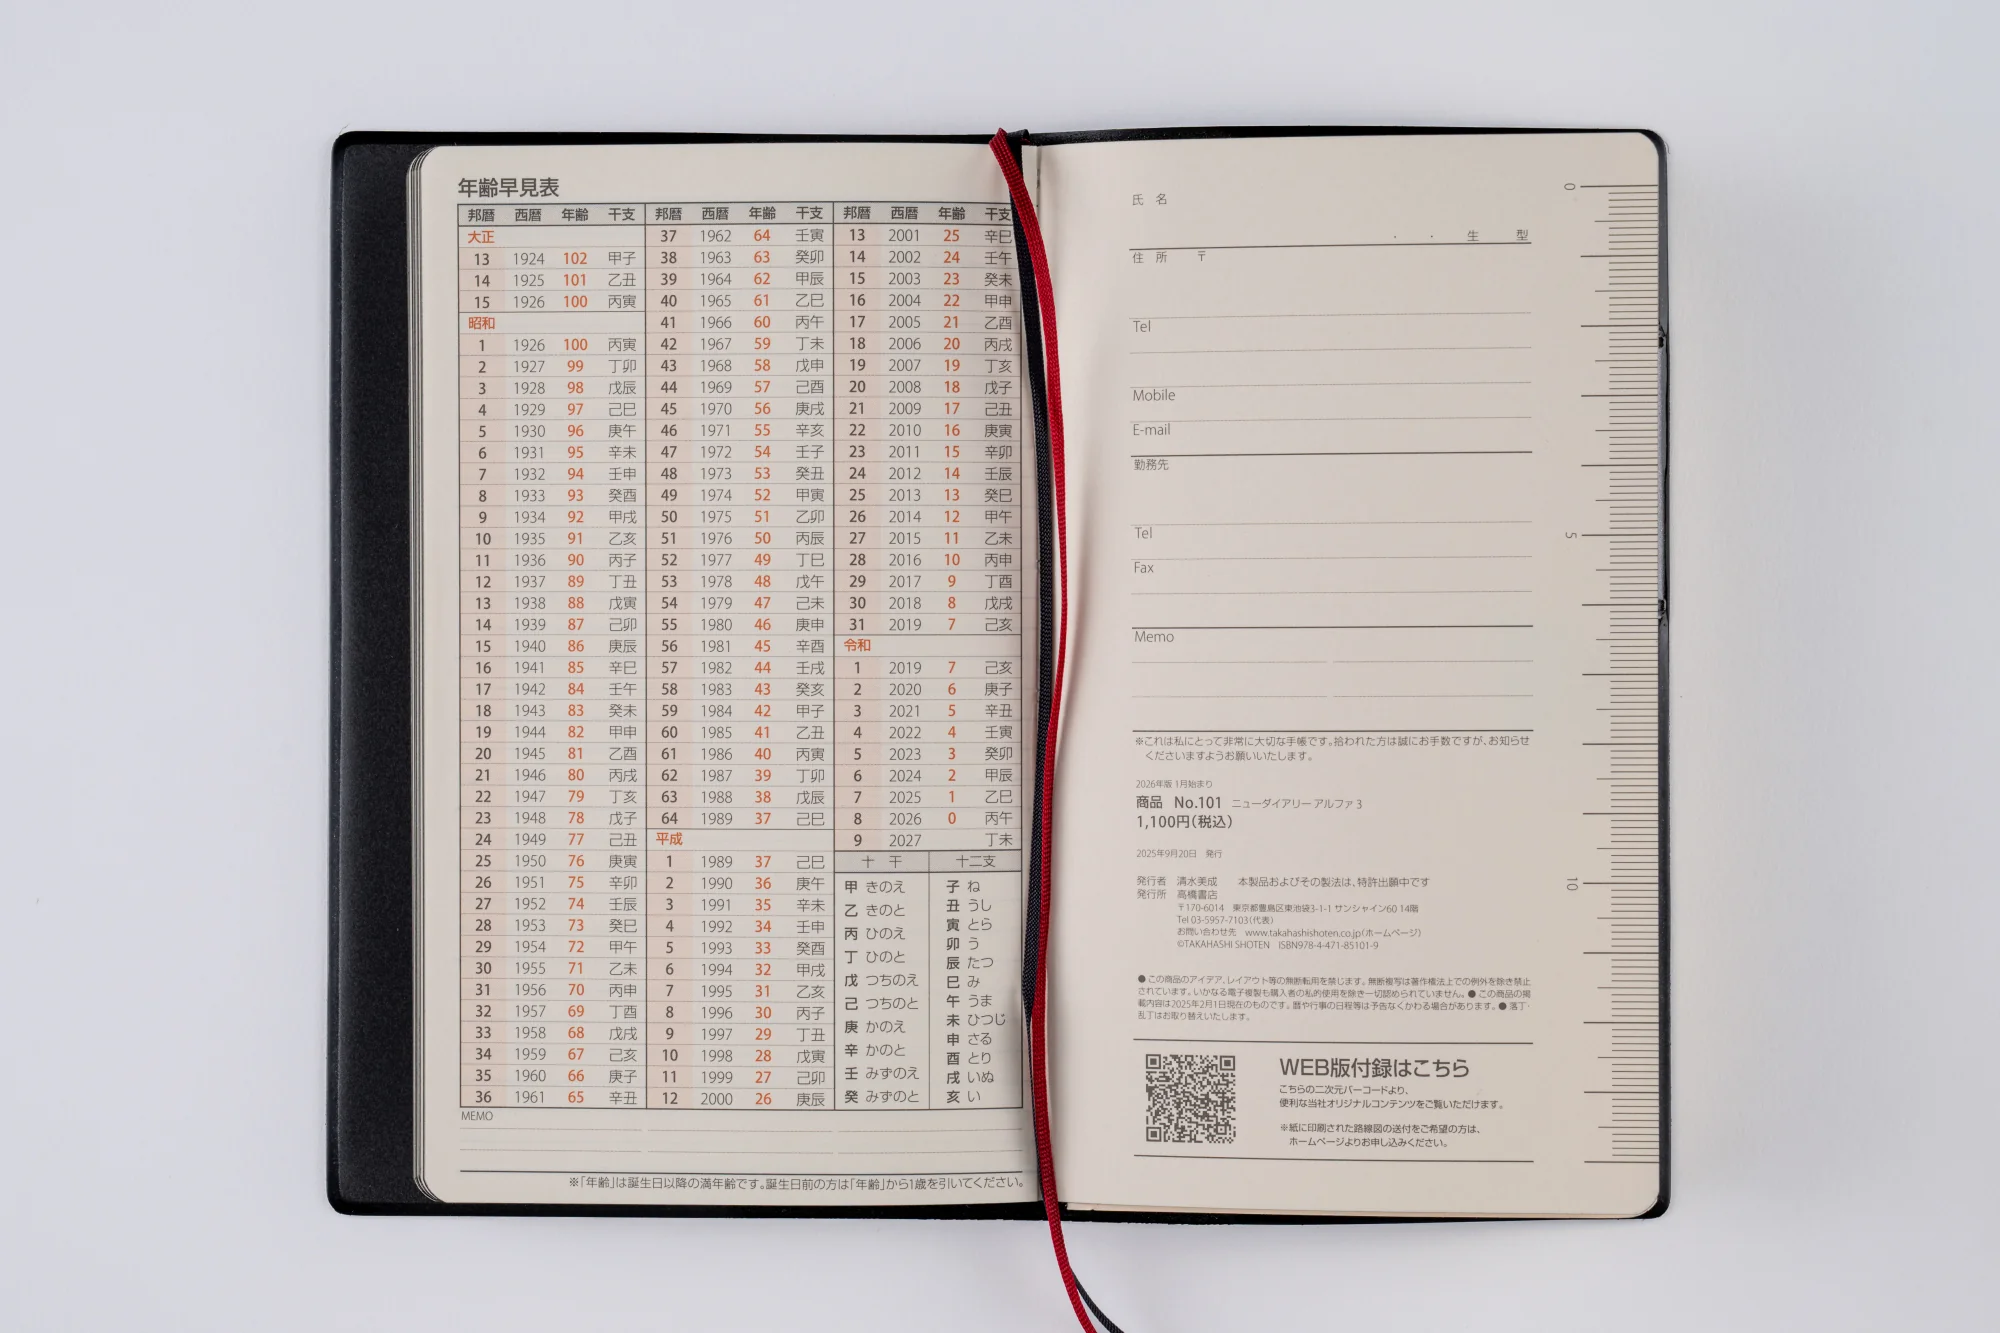 年齢早見表
邦暦 西暦 年齢 干支
大正
13 1924 102 甲子
14 1925 101 乙丑
15 1926 100 丙寅
昭和
1 1926 100 丙寅
2 1927 99 丁卯
3 1928 98 戊辰
4 1929 97 己巳
5 1930 96 庚午
6 1931 95 辛未
7 1932 94 壬申
8 1933 93 癸酉
9 1934 92 甲戌
10 1935 91 乙亥
11 1936 90 丙子
12 1937 89 丁丑
13 1938 88 戊寅
14 1939 87 己卯
15 1940 86 庚辰
16 1941 85 辛巳
17 1942 84 壬午
18 1943 83 癸未
19 1944 82 甲申
20 1945 81 乙酉
21 1946 80 丙戌
22 1947 79 丁亥
23 1948 78 戊子
24 1949 77 己丑
25 1950 76 庚寅
26 1951 75 辛卯
27 1952 74 壬辰
28 1953 73 癸巳
29 1954 72 甲午
30 1955 71 乙未
31 1956 70 丙申
32 1957 69 丁酉
33 1958 68 戊戌
34 1959 67 己亥
35 1960 66 庚子
36 1961 65 辛丑
邦暦 西暦 年齢 干支
37 1962 64 壬寅
38 1963 63 癸卯
39 1964 62 甲辰
40 1965 61 乙巳
41 1966 60 丙午
42 1967 59 丁未
43 1968 58 戊申
44 1969 57 己酉
45 1970 56 庚戌
46 1971 55 辛亥
47 1972 54 壬子
48 1973 53 癸丑
49 1974 52 甲寅
50 1975 51 乙卯
51 1976 50 丙辰
52 1977 49 丁巳
53 1978 48 戊午
54 1979 47 己未
55 1980 46 庚申
56 1981 45 辛酉
57 1982 44 壬戌
58 1983 43 癸亥
59 1984 42 甲子
60 1985 41 乙丑
61 1986 40 丙寅
62 1987 39 丁卯
63 1988 38 戊辰
64 1989 37 己巳
平成
1 1989 37 己巳
2 1990 36 庚午
3 1991 35 辛未
4 1992 34 壬申
5 1993 33 癸酉
6 1994 32 甲戌
7 1995 31 乙亥
8 1996 30 丙子
9 1997 29 丁丑
10 1998 28 戊寅
11 1999 27 己卯
12 2000 26 庚辰
邦暦 西暦 年齢 干支
13 2001 25 辛巳
14 2002 24 壬午
15 2003 23 癸未
16 2004 22 甲申
17 2005 21 乙酉
18 2006 20 丙戌
19 2007 19 丁亥
20 2008 18 戊子
21 2009 17 己丑
22 2010 16 庚寅
23 2011 15 辛卯
24 2012 14 壬辰
25 2013 13 癸巳
26 2014 12 甲午
27 2015 11 乙未
28 2016 10 丙申
29 2017 9 丁酉
30 2018 8 戊戌
31 2019 7 己亥
令和
1 2019 7 己亥
2 2020 6 庚子
3 2021 5 辛丑
4 2022 4 壬寅
5 2023 3 癸卯
6 2024 2 甲辰
7 2025 1 乙巳
8 2026 0 丙午
9 2027 丁未
十 干
甲 きのえ
乙 きのと
丙 ひのえ
丁 ひのと
戊 つちのえ
己 つちのと
庚 かのえ
辛 かのと
壬 みずのえ
癸 みずのと
十二支
子 ね
丑 うし
寅 とら
卯 う
辰 たつ
巳 み
午 うま
未 ひつじ
申 さる
酉 とり
戌 いぬ
亥 い
MEMO
※「年齢」は誕生日以降の満年齢です。誕生日前の方は「年齢」から1歳を引いてください。
氏 名
・ ・ 生 型
住 所 〒
Tel
Mobile
E-mail
勤務先
Tel
Fax
Memo
※これは私にとって非常に大切な手帳です。拾われた方は誠にお手数ですが、お知らせ
くださいますようお願いいたします。
2026年版 1月始まり
商品 No.101 ニューダイアリー アルファ 3
1,100円(税込)
2025年9月20日 発行
発行者 清水美成 本製品およびその製法は、特許出願中です
発行所 高橋書店
〒170-6014 東京都豊島区東池袋3-1-1 サンシャイン60 14階
Tel 03-5957-7103(代表)
お問い合わせ先 www.takahashishoten.co.jp(ホームページ)
©TAKAHASHI SHOTEN ISBN978-4-471-85101-9
● この商品のアイデア、レイアウト等の無断転用を禁じます。無断複写は著作権法上での例外を除き禁止
されています。いかなる電子複製も購入者の私的使用を除き一切認められていません。● この商品の掲
載内容は2025年2月1日現在のものです。暦や行事の日程等は予告なくかわる場合があります。● 落丁・
乱丁はお取り替えいたします。
WEB版付録はこちら
こちらの二次元バーコードより、
便利な当社オリジナルコンテンツをご覧いただけます。
※紙に印刷された路線図の送付をご希望の方は、
ホームページよりお申し込みください。
0
5
10